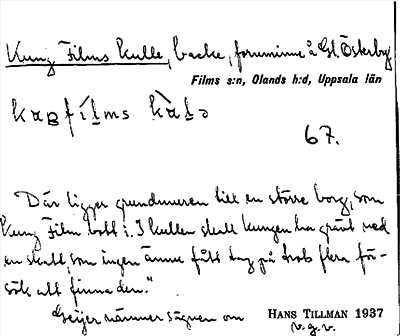 Kung Films kulle, backe, fornminne å Gl Österby
Films s:n, Olands h:d, Uppsala län
67.
Där ligger grundmuren till en större borg, som
Kung Film bott i. I kullen skall kungen ha grävt ned
en skatt, som ingen ännu fått tag på trots flera för-
sök att finna den."
Geijer nämner sägnen om
HANS TILLMAN 1937
v.g.v.